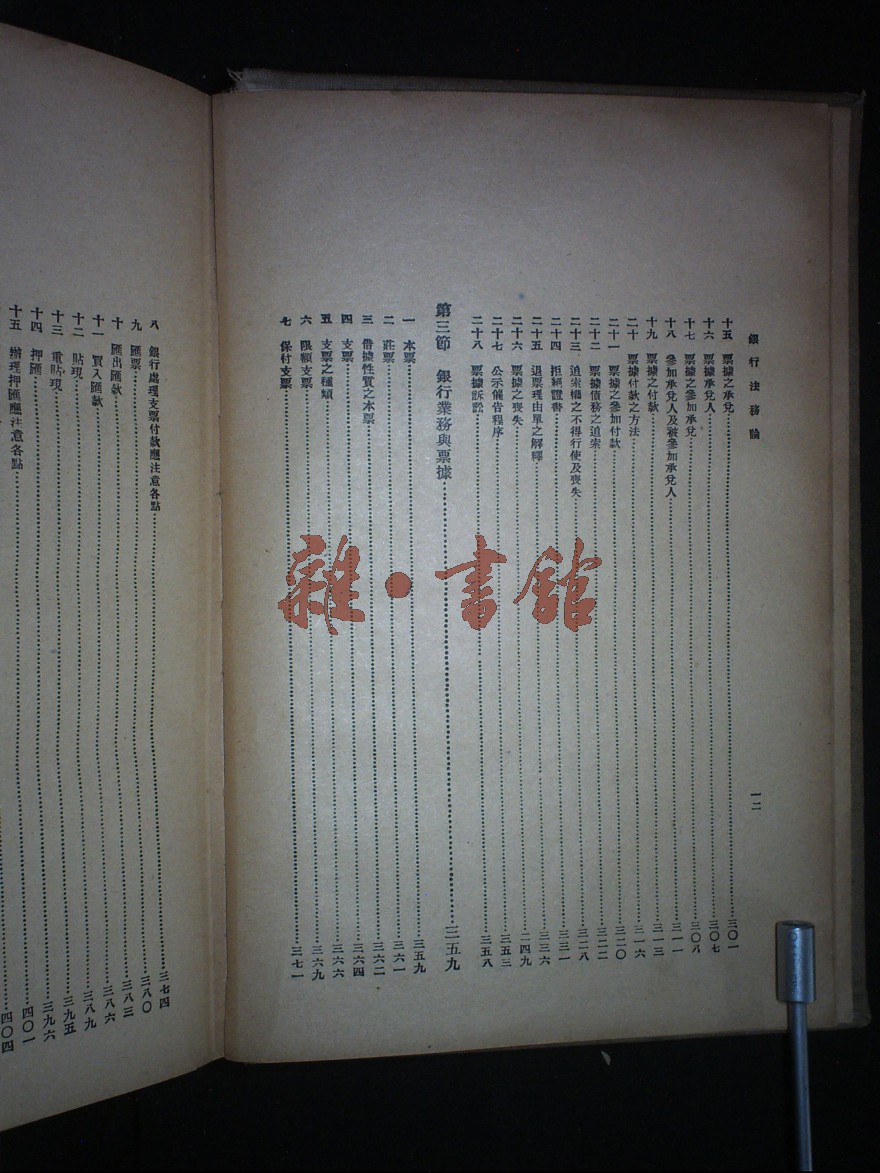 銀行法務論
一二
十五 票據之承兌 三〇一
十六 票據承兌人 三〇七
十七 票據之參加承兌 三〇八
十八 參加承兌人及被參加承兌人 三一一
十九 票據之付款 三一三
二十 票據付款之方法 三一六
二十一 票據之參加付款 三二〇
二十二 票據債務之追索 三二二
二十三 追索權之不得行使及喪失 三二八
二十四 拒絕證書 三三一
二十五 退票理由單之解釋 三三六
二十六 票據之喪失 二四九
二十七 公示催告程序 三五三
二十八 票據訴訟 三五八
第三節 銀行業務與票據 三五九
一 本票 三五九
二 莊票 三六一
三 借據性質之本票 三六二
四 支票 三六四
五 支票之種類 三六六
六 限額支票 三六九
七 保付支票 三七一
八 銀行處理支票付款應注意各點 三七四
九 匯票 三八〇
十 匯出匯款 三八三
十一 買入匯款 三八六
十二 貼現 三八九
十三 重貼現 三九五
十四 押匯 三九六
十五 辦理押匯應注意各點 四〇一
四〇四
雜·書館